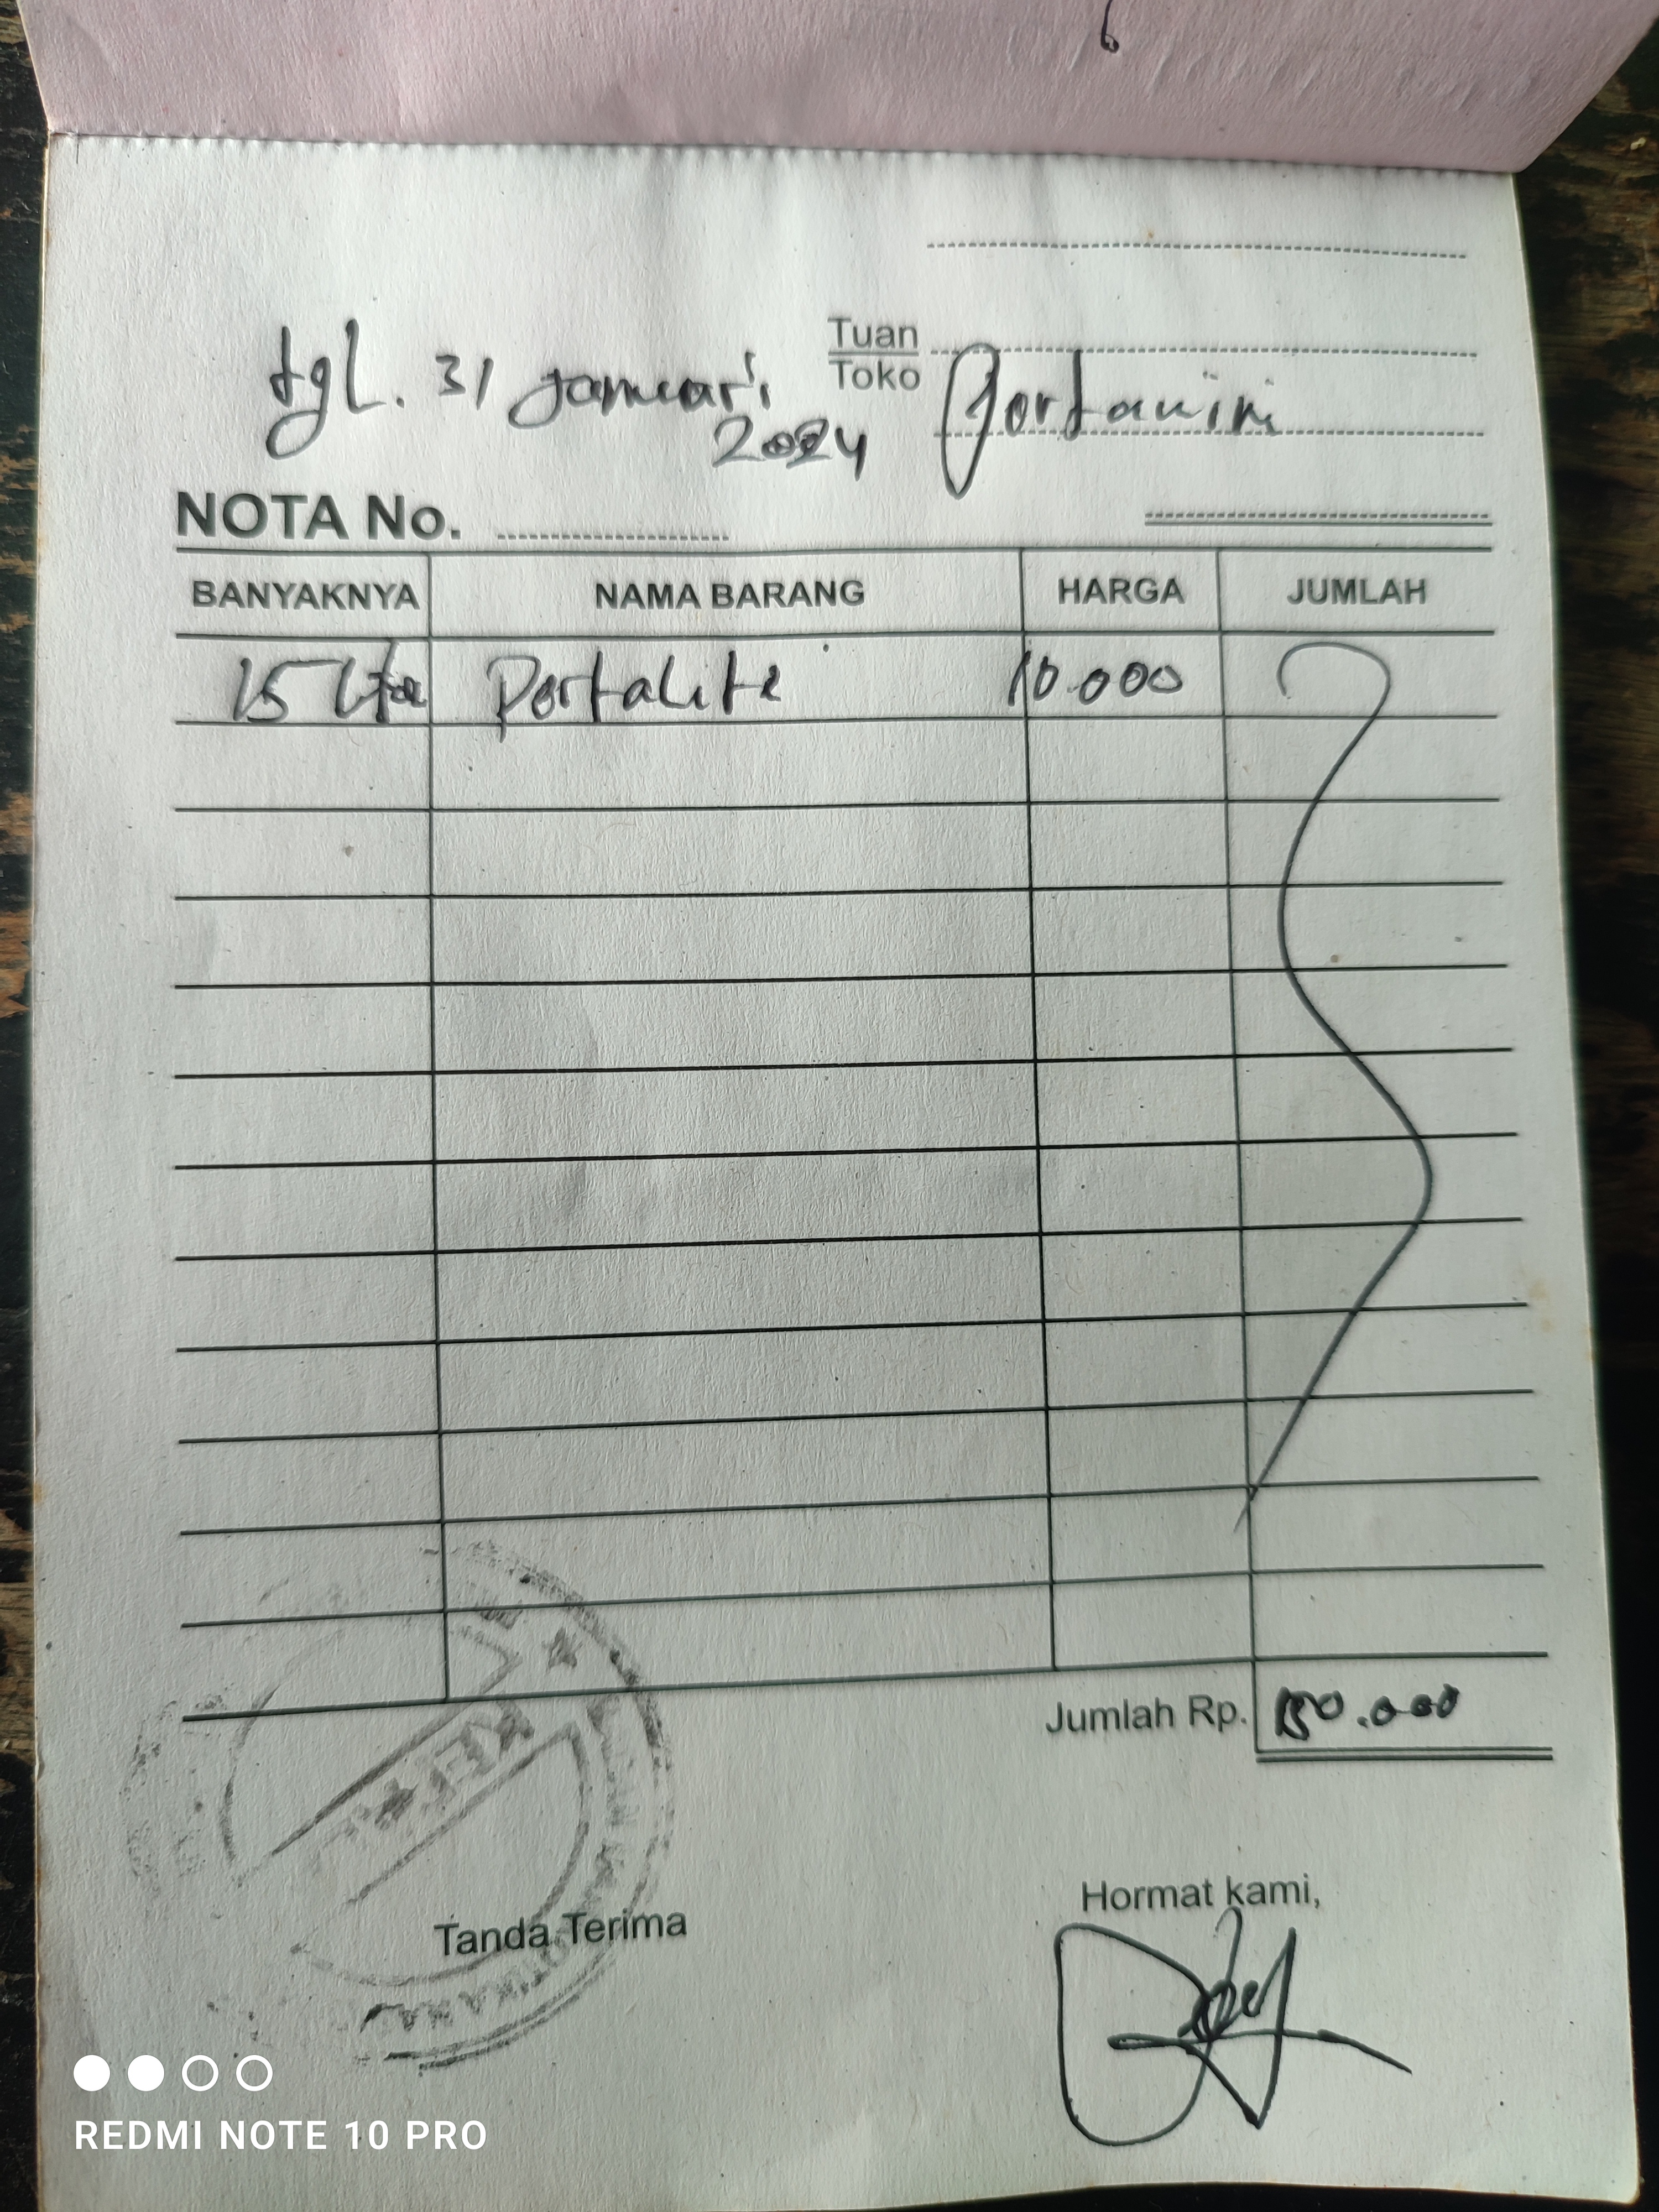 Tuan
tgl. 31 januari Toko Pertamini
2024
NOTA No.
BANYAKNYA NAMA BARANG HARGA JUMLAH
15 Liter Pertalite 10.000
Jumlah Rp. 150.000
Hormat kami,
Tanda Terima
REDMI NOTE 10 PRO